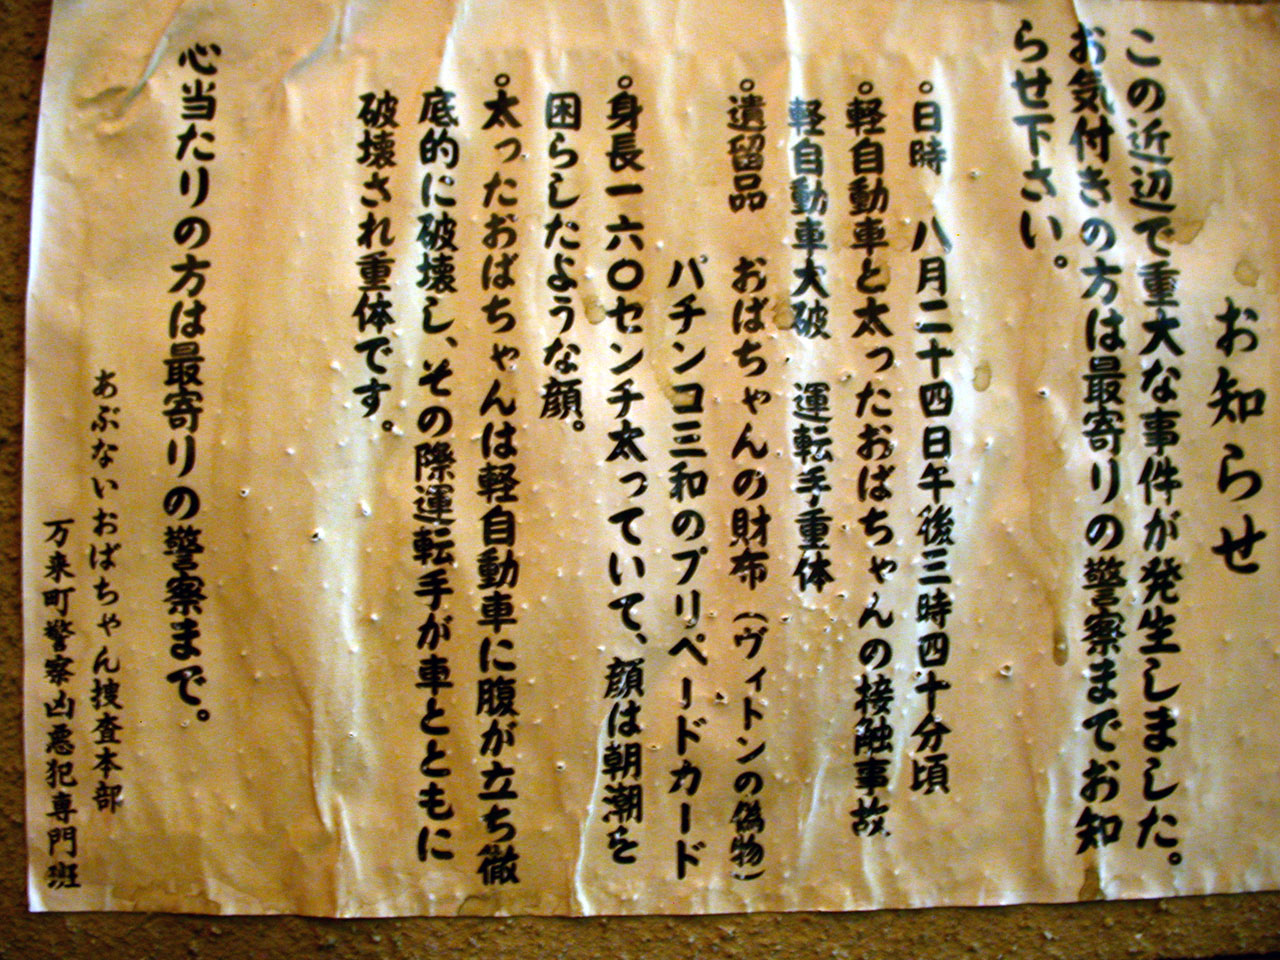 お知らせ
この近辺で重大な事件が発生しました。
お気付きの方は最寄りの警察までお知
らせ下さい。
。日時　八月二十四日午後三時四十分頃
。軽自動車と太ったおばちゃんの接触事故
軽自動車大破　運転手重体
。遺留品　おばちゃんの財布（ヴィトンの偽物）
パチンコ三和のプリペードカード
。身長一六〇センチ太っていて、顔は朝潮を
困らしたような顔。
。太ったおばちゃんは軽自動車に腹が立ち徹
底的に破壊し、その際運転手が車とともに
破壊され重体です。
心当たりの方は最寄りの警察まで。
あぶないおばちゃん捜査本部
万来町警察凶悪犯専門班